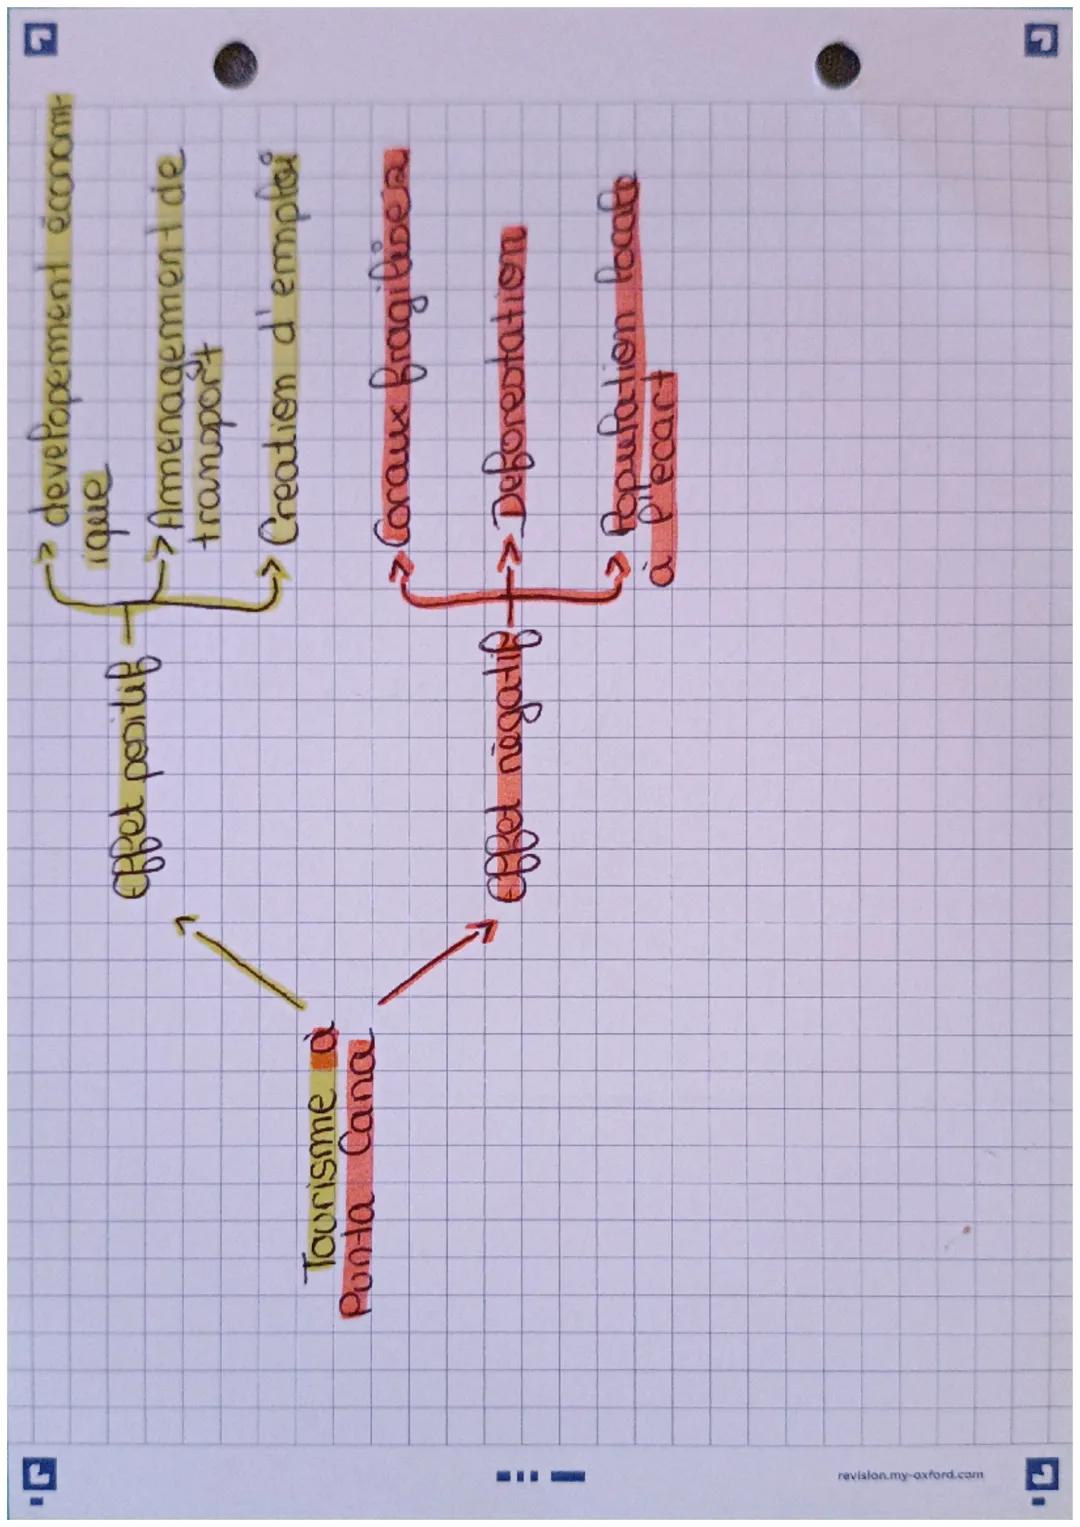 Tourisme à
Punta Cana
effet positif
developement économ-
ique
Amenagement de
transport
Creation d'emploi
effet négatif
Coraux fragiliser
Deforestation
Population locale
à l'ecart
revision.my-oxford.com